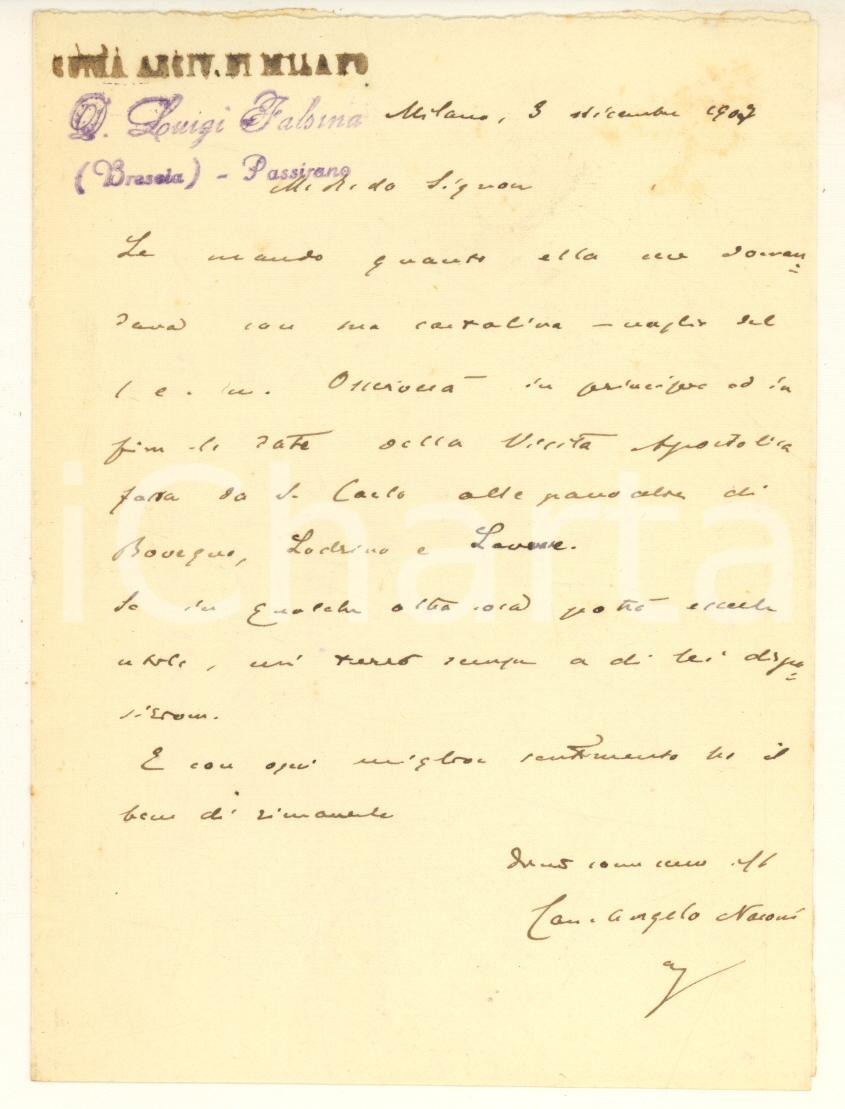 CURIA ARCIV. DI MILANO
D. Luigi Falsina
(Brescia) - Passirano
Milano, 3 dicembre 1907
M. Rdo Signore
Le mando quanto ella me doman=
dava con sua cartolina-vaglia del
1 c. m. Osserverà in principio ed in
fine le date della Visita Apostolica
fatta da S. Carlo alle parrocchie di
Bovegno, Lodrino e Lavone.
Se in qualche altra cosa potrò esserle
utile, mi terrò sempre a di lei dispo=
sizione.
E con ogni miglior sentimento ho il
bene di rimanerle
Can. Angelo Nasoni
iCharta